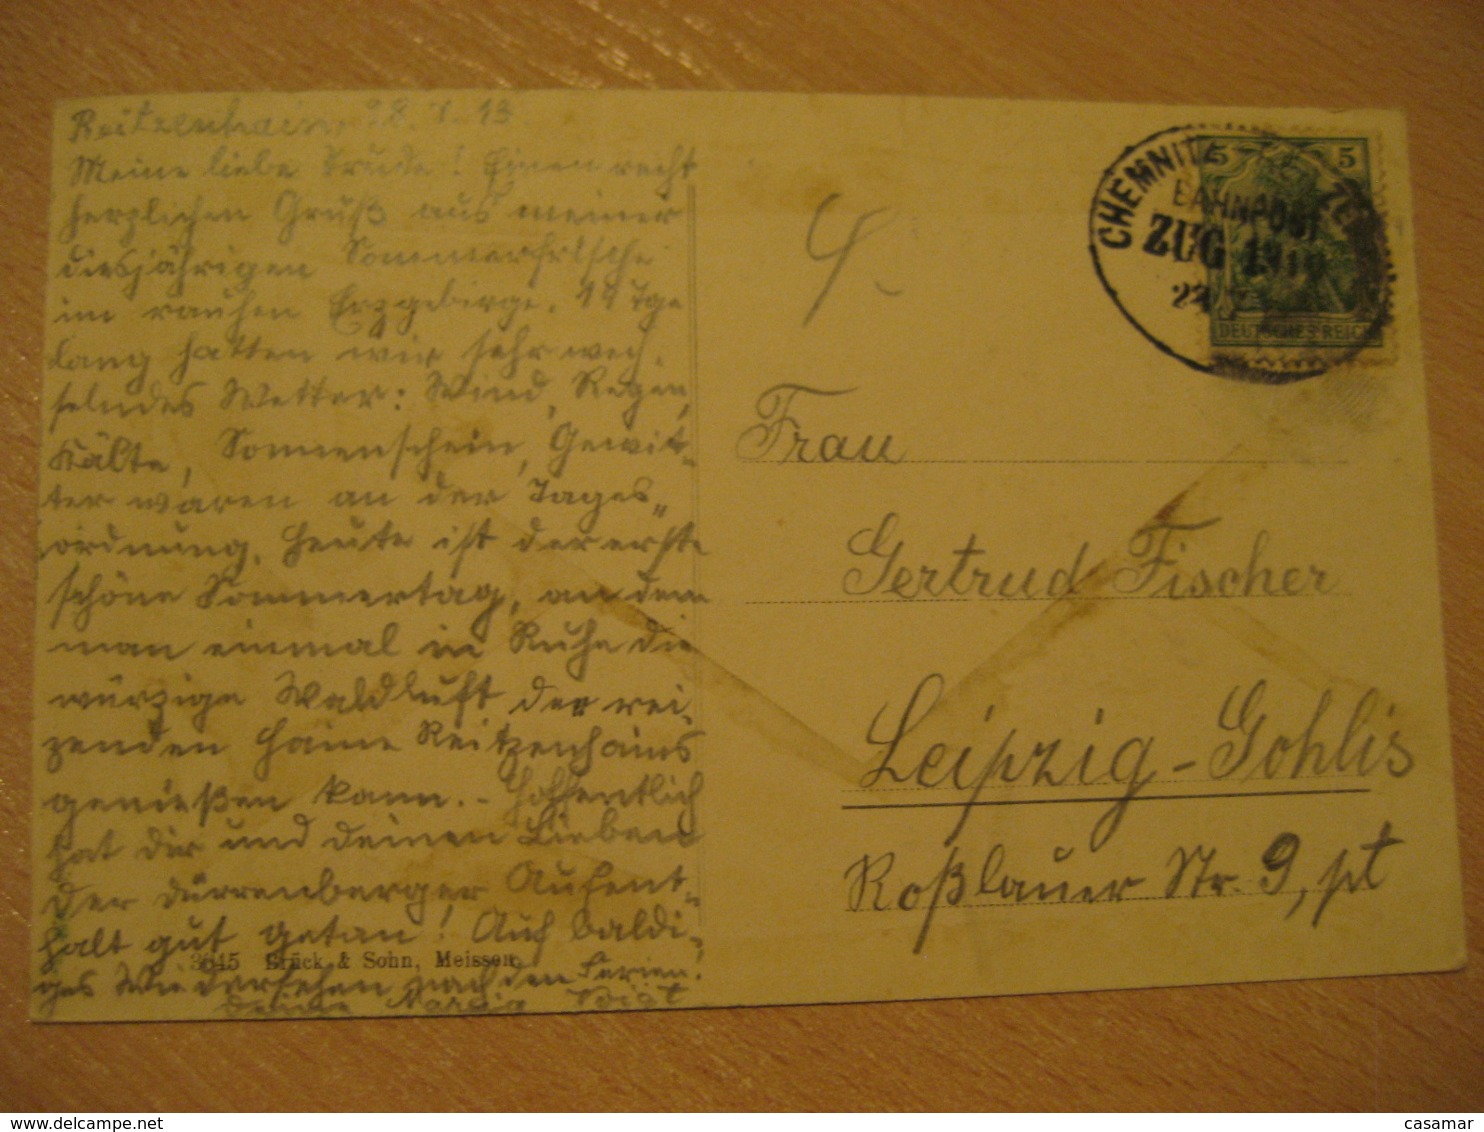 Reitzenhain, 28. 7. 13
Meine liebe Trude! Einen recht
herzlichen Gruß aus meiner
diesjährigen Sommerfrische
im rauhen Erzgebirge. 14 Tge
lang hatten wir sehr wech-
selndes Wetter: Wind, Regen,
Kälte, Sonnenschein, Gewit-
ter waren an der Tages-
ordnung. Heute ist der erste
schöne Sommertag, an dem
man einmal in Ruhe die
würzige Waldluft der rei-
zenden Haine Reitzenhains
genießen kann. - Hoffentlich
hat dir und deinen Lieben
der Dürrenberger Aufent-
halt gut getan! Auf baldi-
ges Wiedersehen nach den Ferien.
Deine Voigt
3645 Brück & Sohn, Meissen
CHEMNITZ
BAHNPOST
ZUG 1919
5 5
DEUTSCHES REICH
Frau
Gertrud Fischer
Leipzig-Gohlis
Roßlauer Str. 9, pt
casamar